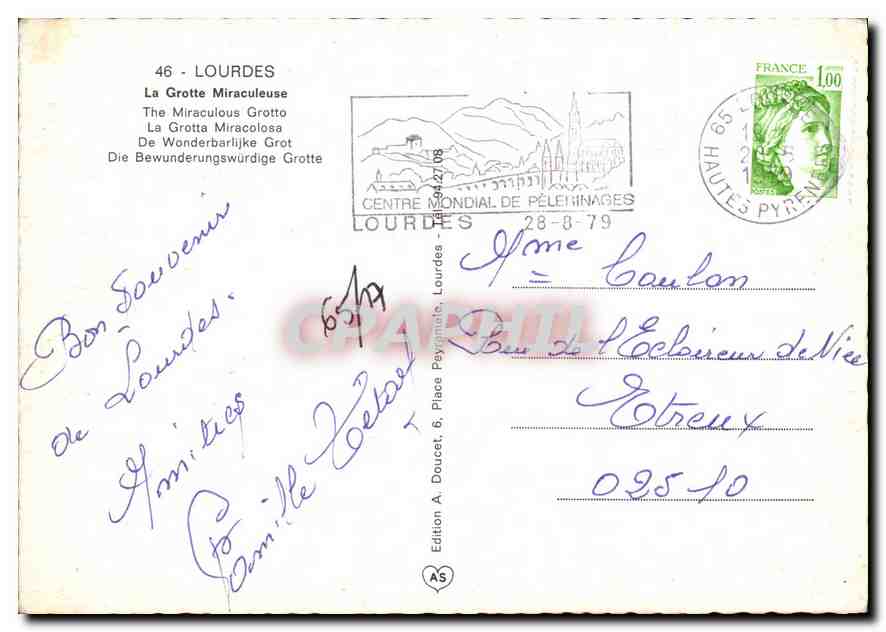 46 - LOURDES
La Grotte Miraculeuse
The Miraculous Grotto
La Grotta Miracolosa
De Wonderbarlijke Grot
Die Bewunderungswürdige Grotte
CENTRE MONDIAL DE PÈLERINAGES
LOURDES 28-8-79
FRANCE 1,00
65
HAUTES PYREN
Bon Souvenir
de Lourdes.
Amitiés
Famille
65/17
CPAPHIL
Edition A. Doucet, 6, Place Peyramale, Lourdes - Tél. 94.27.08
AS
Mme Coulon
Rue de l'Eclaireur de Nice
Etreux
02510